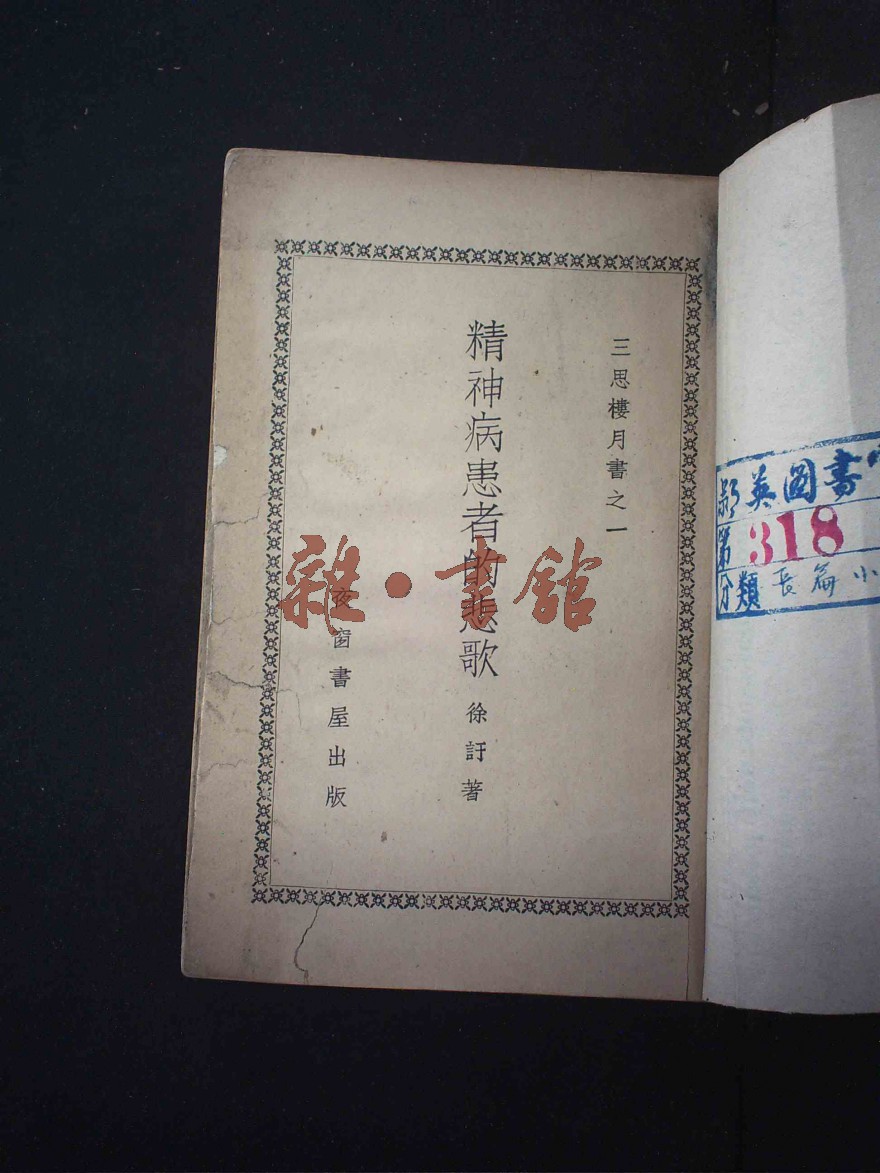 三思樓月書之一
精神病患者的悲歌
徐訏著
夜窗書屋出版
雜·書館
英圖書
第318
分類長篇小